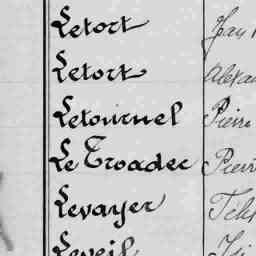 Letort Jean
Letort Alexa
Letournel Pierre
Le Troadec Pierre
Levayer
Leveil